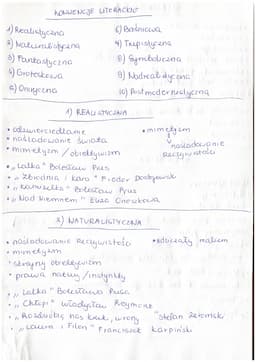 KONWENCJE LITERACKIE
1) Realistyczna 6) Baśniowa
2) Naturalistyczna 7) Turpistyczna
3) Fantastyczna 8) Symboliczna
4) Groteskowa 9) Nadrealistyczna
5) Oniryczna 10) Postmodernistyczna
1) REALISTYCZNA
• odzwierciedlanie • mimetyzm
• naśladowanie świata
• mimetyzm / obiektywizm naśladowanie rzeczywistości
• "Lalka" Bolesław Prus
• "Zbrodnia i kara" Fiodor Dostojewski
• "Kamizelka" Bolesław Prus
• "Nad Niemnem" Eliza Orzeszkowa
2) NATURALISTYCZNA
• naśladowanie rzeczywistości
• mimetyzm
• skrajny obiektywizm
• prawa natury / instynkty
• "Lalka" Bolesława Prusa
• "Chłopi" Władysław Reymont
• "Rozdzióbią nas kruki, wrony" Stefan Żeromski
• "Laura i Filon" Franciszek Karpiński